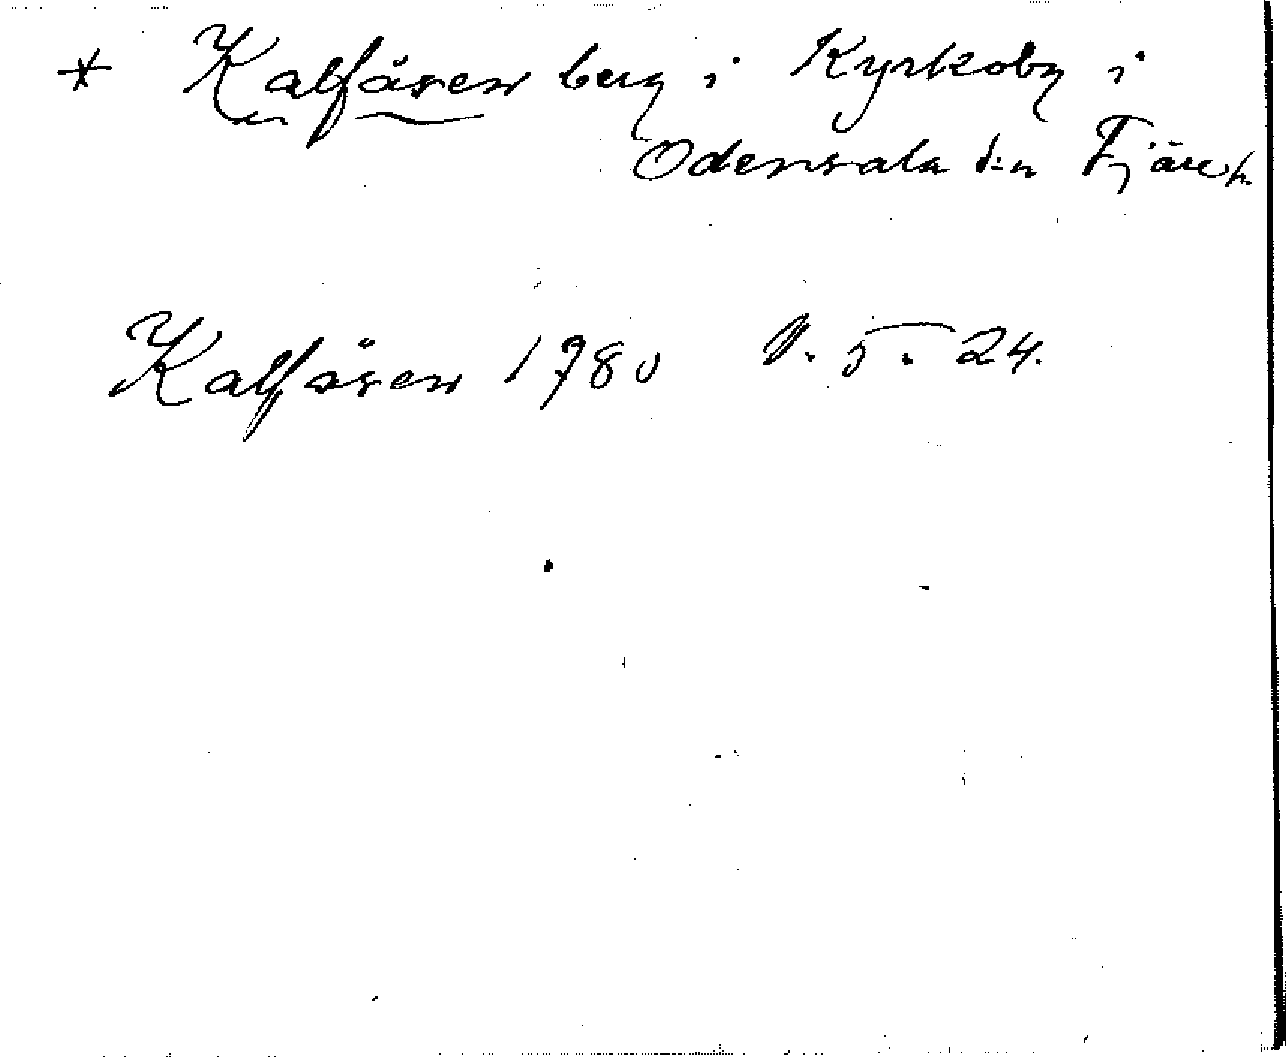 * Kalfåsen berg i Kyrkoby i
Odensala sn Fjäre h.
Kalfåsen 1780 5. 24.